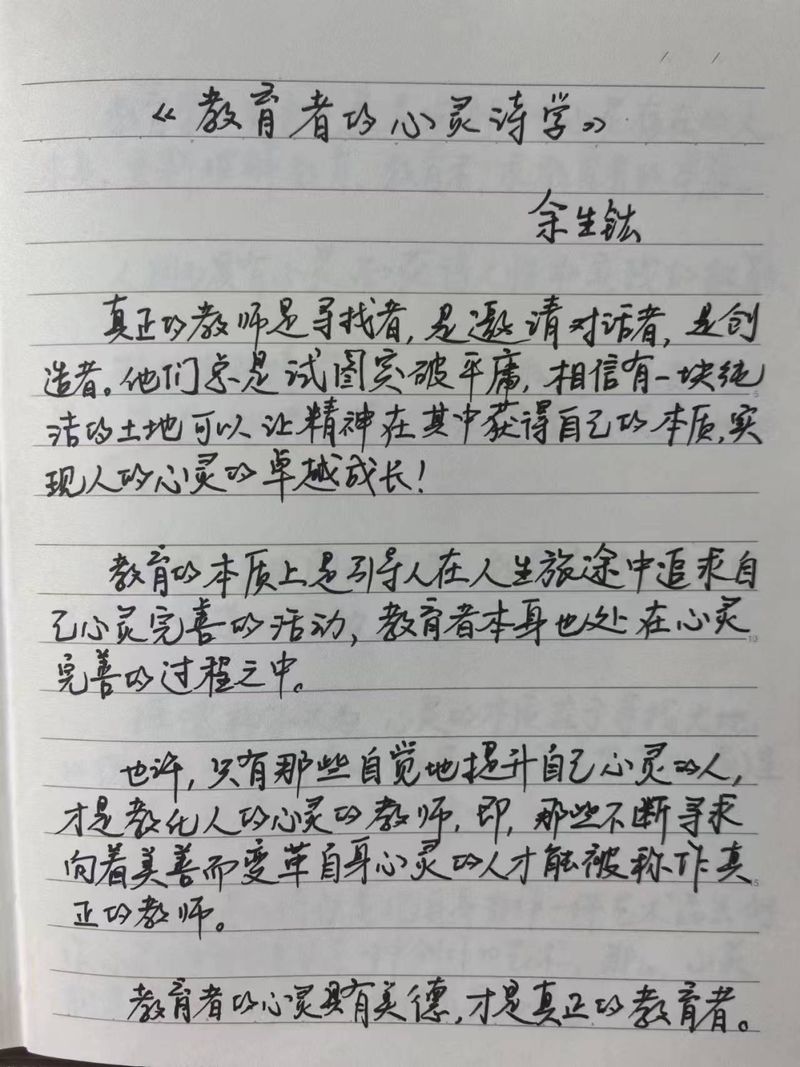 《教育者的心灵诗学》
余生钛
真正的教师是寻找者,是邀请对话者,是创
造者。他们总是试图突破平庸,相信有一块纯
洁的土地可以让精神在其中获得自己的本质,实
现人的心灵的卓越成长!
教育的本质上是引导人在人生旅途中追求自
己心灵完善的活动,教育者本身也处在心灵
完善的过程之中。
也许,只有那些自觉地提升自己心灵的人,
才是教化人的心灵的教师,即,那些不断寻求
向着美善而变革自身心灵的人才能被称作真
正的教师。
教育者的心灵具有美德,才是真正的教育者。